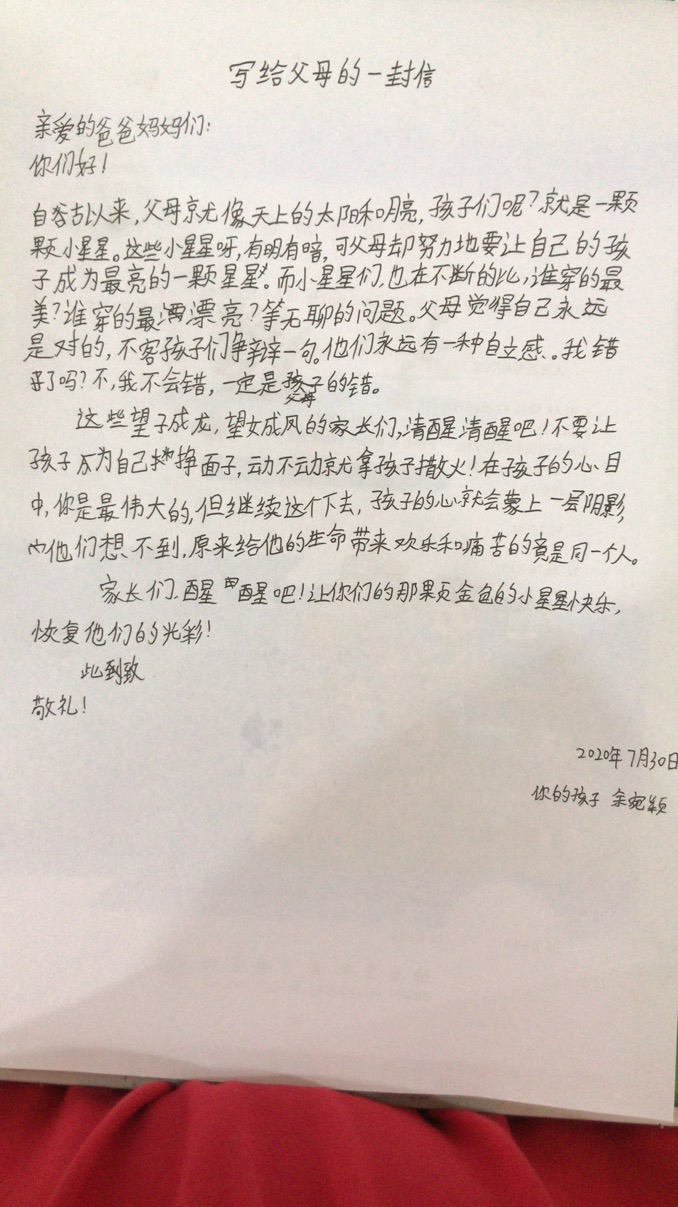 写给父母的一封信
亲爱的爸爸妈妈们:
你们好!
自古以来,父母就像天上的太阳和月亮,孩子们呢?就是一颗
颗小星星。这些小星星呀,有明有暗,可父母却努力地要让自己的孩
子成为最亮的一颗星星。而小星星们,也在不断的比,谁穿的最
美?谁穿的最漂亮?等无聊的问题。父母觉得自己永远
是对的,不容孩子们争辩一句。他们永远有一种自立感、。我错
了吗?不,我不会错,一定是孩子的错。
父母
这些望子成龙,望女成凤的家长们,清醒清醒吧!不要让
孩子为自己挣面子,动不动就拿孩子撒火!在孩子的心目
中,你是最伟大的,但继续这个下去,孩子的心就会蒙上一层阴影,
他们想不到,原来给他的生命带来欢乐和痛苦的竟是同一个人。
家长们.醒醒吧!让你们的那颗金色的小星星快乐,
恢复他们的光彩!
此致
敬礼!
2020年7月30日
你的孩子 余宛颖